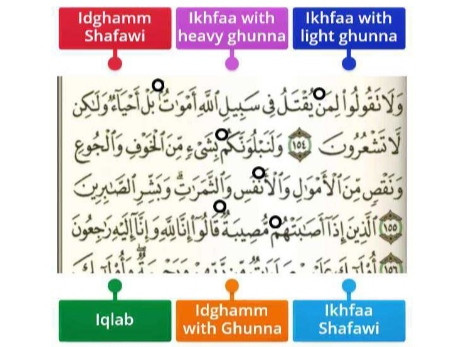 Idghamm Shafawi
Ikhfaa with heavy ghunna
Ikhfaa with light ghunna
وَلَا تَقُولُوا۟ لِمَن يُقْتَلُ فِى سَبِيلِ ٱللَّهِ أَمْوَٰتٌۢ بَلْ أَحْيَآءٌ وَلَٰكِن
لَّا تَشْعُرُونَ ١٥٤ وَلَنَبْلُوَنَّكُم بِشَىْءٍ مِّنَ ٱلْخَوْفِ وَٱلْجُوعِ
وَنَقْصٍ مِّنَ ٱلْأَمْوَٰلِ وَٱلْأَنفُسِ وَٱلثَّمَرَٰتِ ۗ وَبَشِّرِ ٱلصَّٰبِرِينَ
١٥٥ ٱلَّذِينَ إِذَآ أَصَٰبَتْهُم مُّصِيبَةٌ قَالُوٓا۟ إِنَّا لِلَّهِ وَإِنَّآ إِلَيْهِ رَٰجِعُونَ
١٥٦
Iqlab
Idghamm with Ghunna
Ikhfaa Shafawi